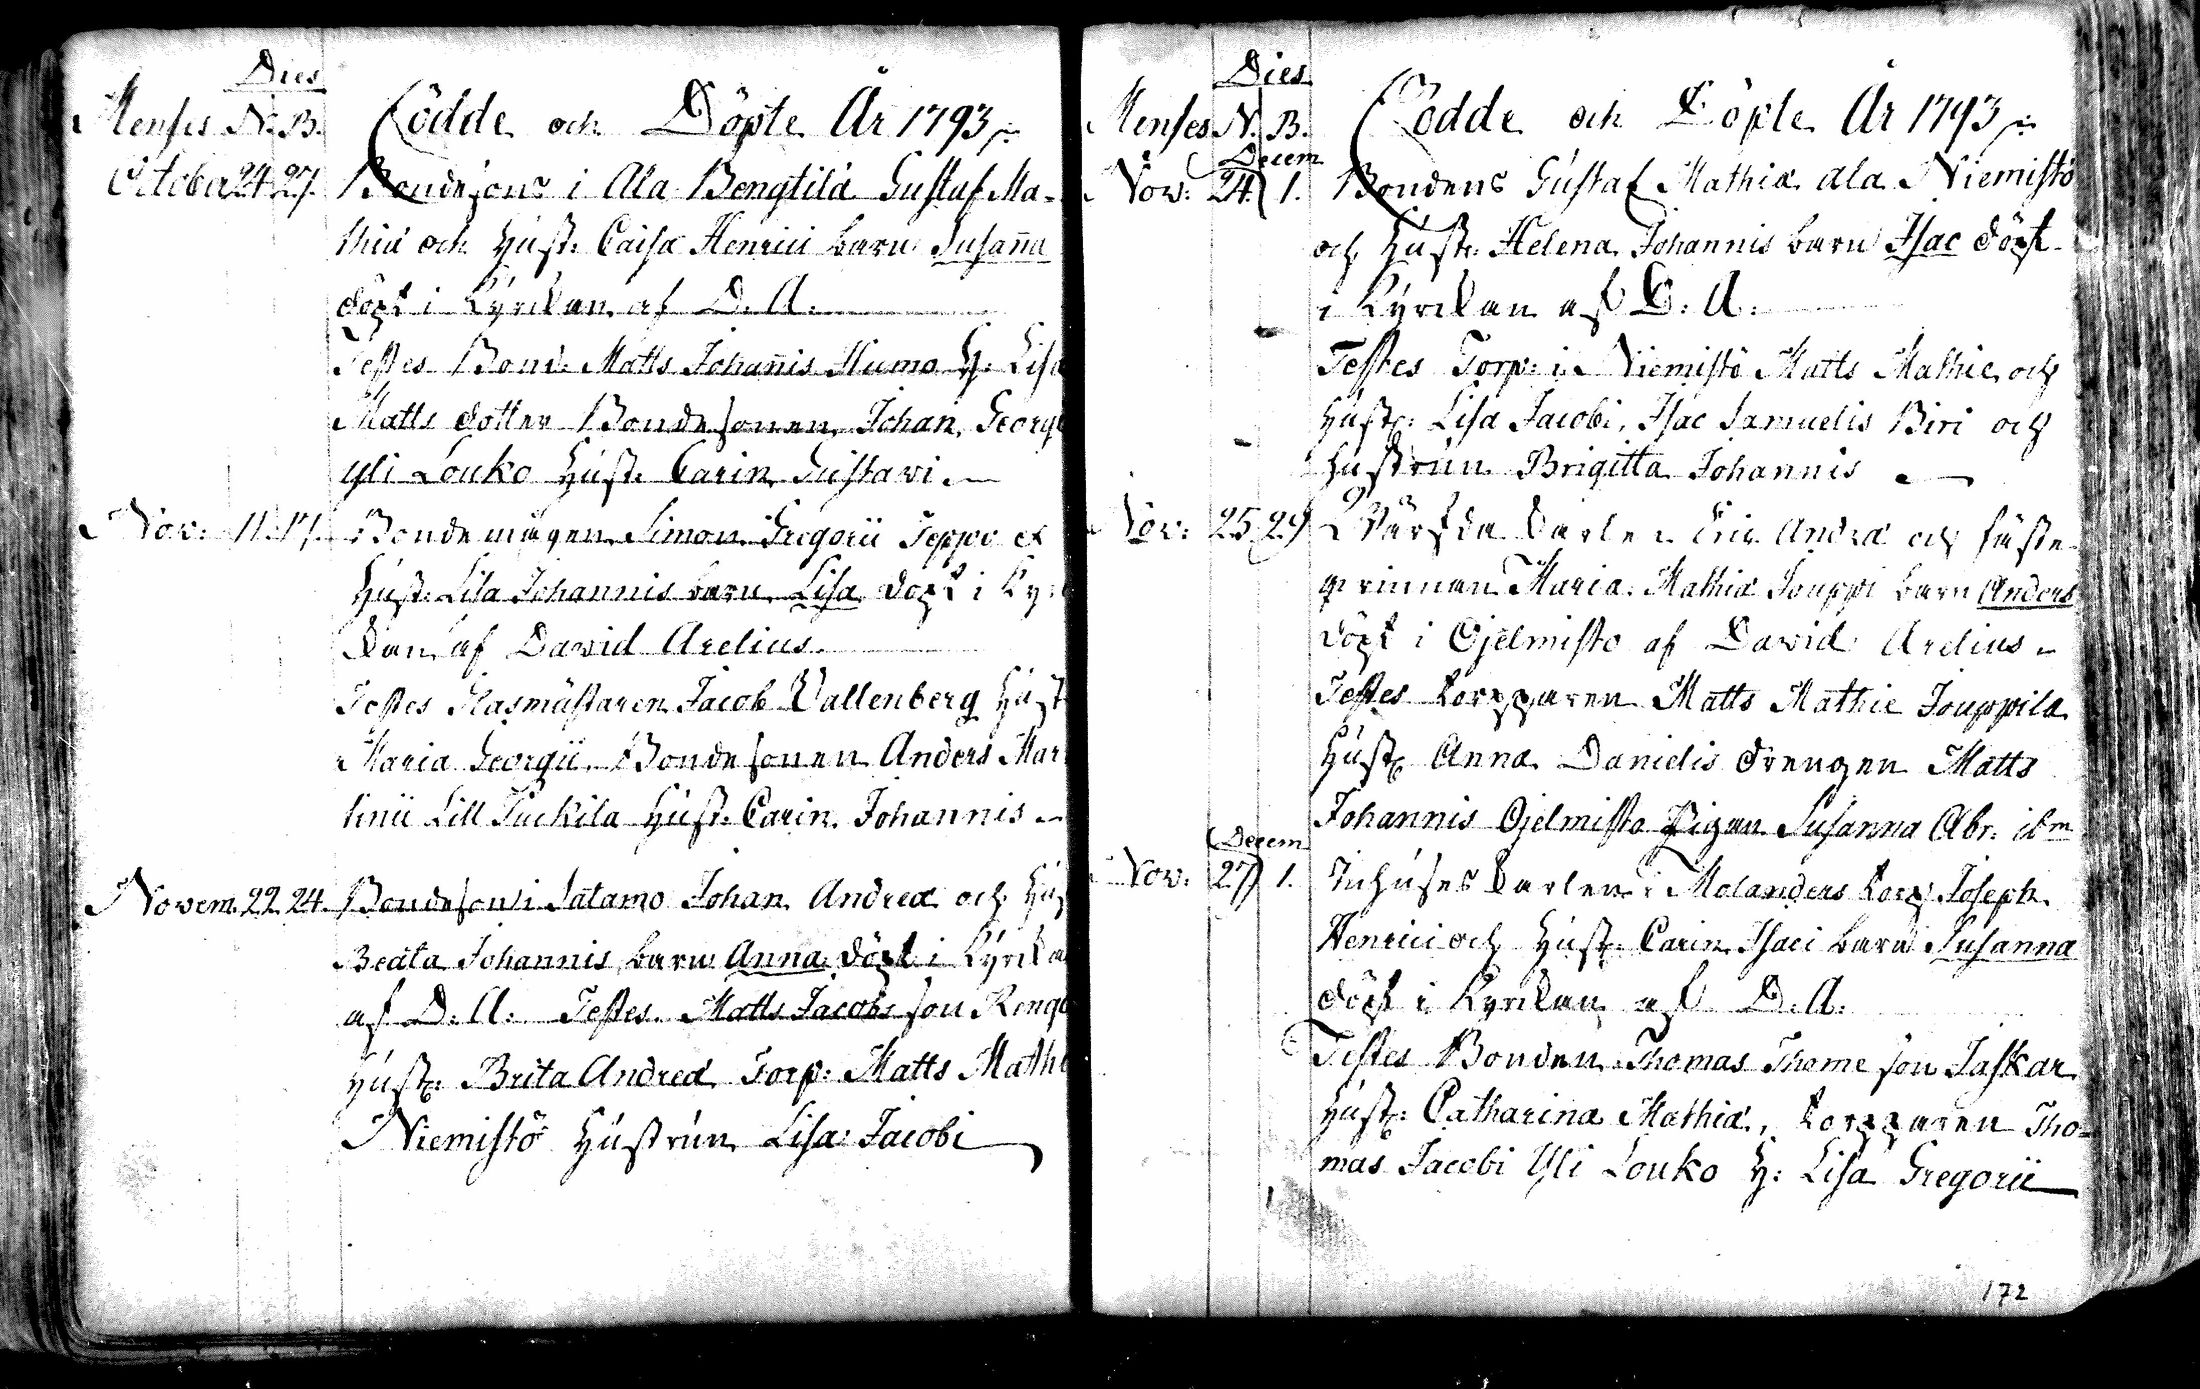 Dies
Menses N. B. Födde och Döpte År 1793
October 24 27. Bondesons i Ala Bengtila Gustaf Ma-
thiæ och Hust: Caisa Henrici barn Susaña
döpt i Kÿrckan af D. A.
Testes Bond: Matts Johañis Humo H: Lisa
Matts dotter Bondesonen Johan Georgi
Yli Louko Hust: Carin Gustavi
Nov: 11. 17. Bondemågen Simon Gregorii Seppo et
Hust: Lisa Johannis barn Lisa döpt i Kyrc
kan af David Arelius.
Testes Glasmästaren Jacob Vallenberg Hust
Maria Georgii, Bondesonen Anders Mar
tinii Lill Tuckila Hust: Carin Johannis
Novem. 22 24. Bondeson i Satamo Johan Andreæ och Hust
Beata Johannis barn Anna döpt i Kÿrcka
af D. A: Testes Matts Jacobsson Rengo
Hust: Brita Andreæ Torp: Matts Mathi
Niemistö Hustrun Lisa Jacobi
Dies
Menses N. B. Födde och Döpte År 1793
Decem
Nov: 24. 1. Bondens Gustaf Mathiæ Ala Niemistö
och Hustr: Helena Johannis barn Isac döpt
i Kÿrckan af D: A:
Testes Torp: i Niemistö Matts Mathie och
Hustr: Lisa Jacobi, Isac Samuelis Biri och
Hustrun Brigitta Johannis
Nov: 25 29 Värfda Karlen Eric Andræ och fäste-
qvinnan Maria Mathiæ Jouppi barn Anders
döpt i Ojelmisto af David Arelius
Testes torpparen Matts Mathie Jouppila
Hustr Anna Danielis drengen Matts
Johannis Ojelmisto Pigan Susanna Abr: ibm
Decem
Nov: 27 1. Inhuses karlen i Molanders torp Joseph
Henrici och Hust: Carin Isaci barn Susanna
döpt i Kyrckan af D. A.
Testes Bonden Thomas Thomeson Jaskar
Hustr: Catharina Mathiæ, torpparen Tho-
mas Jacobi Yli Louko H: Lisa Gregorii
172